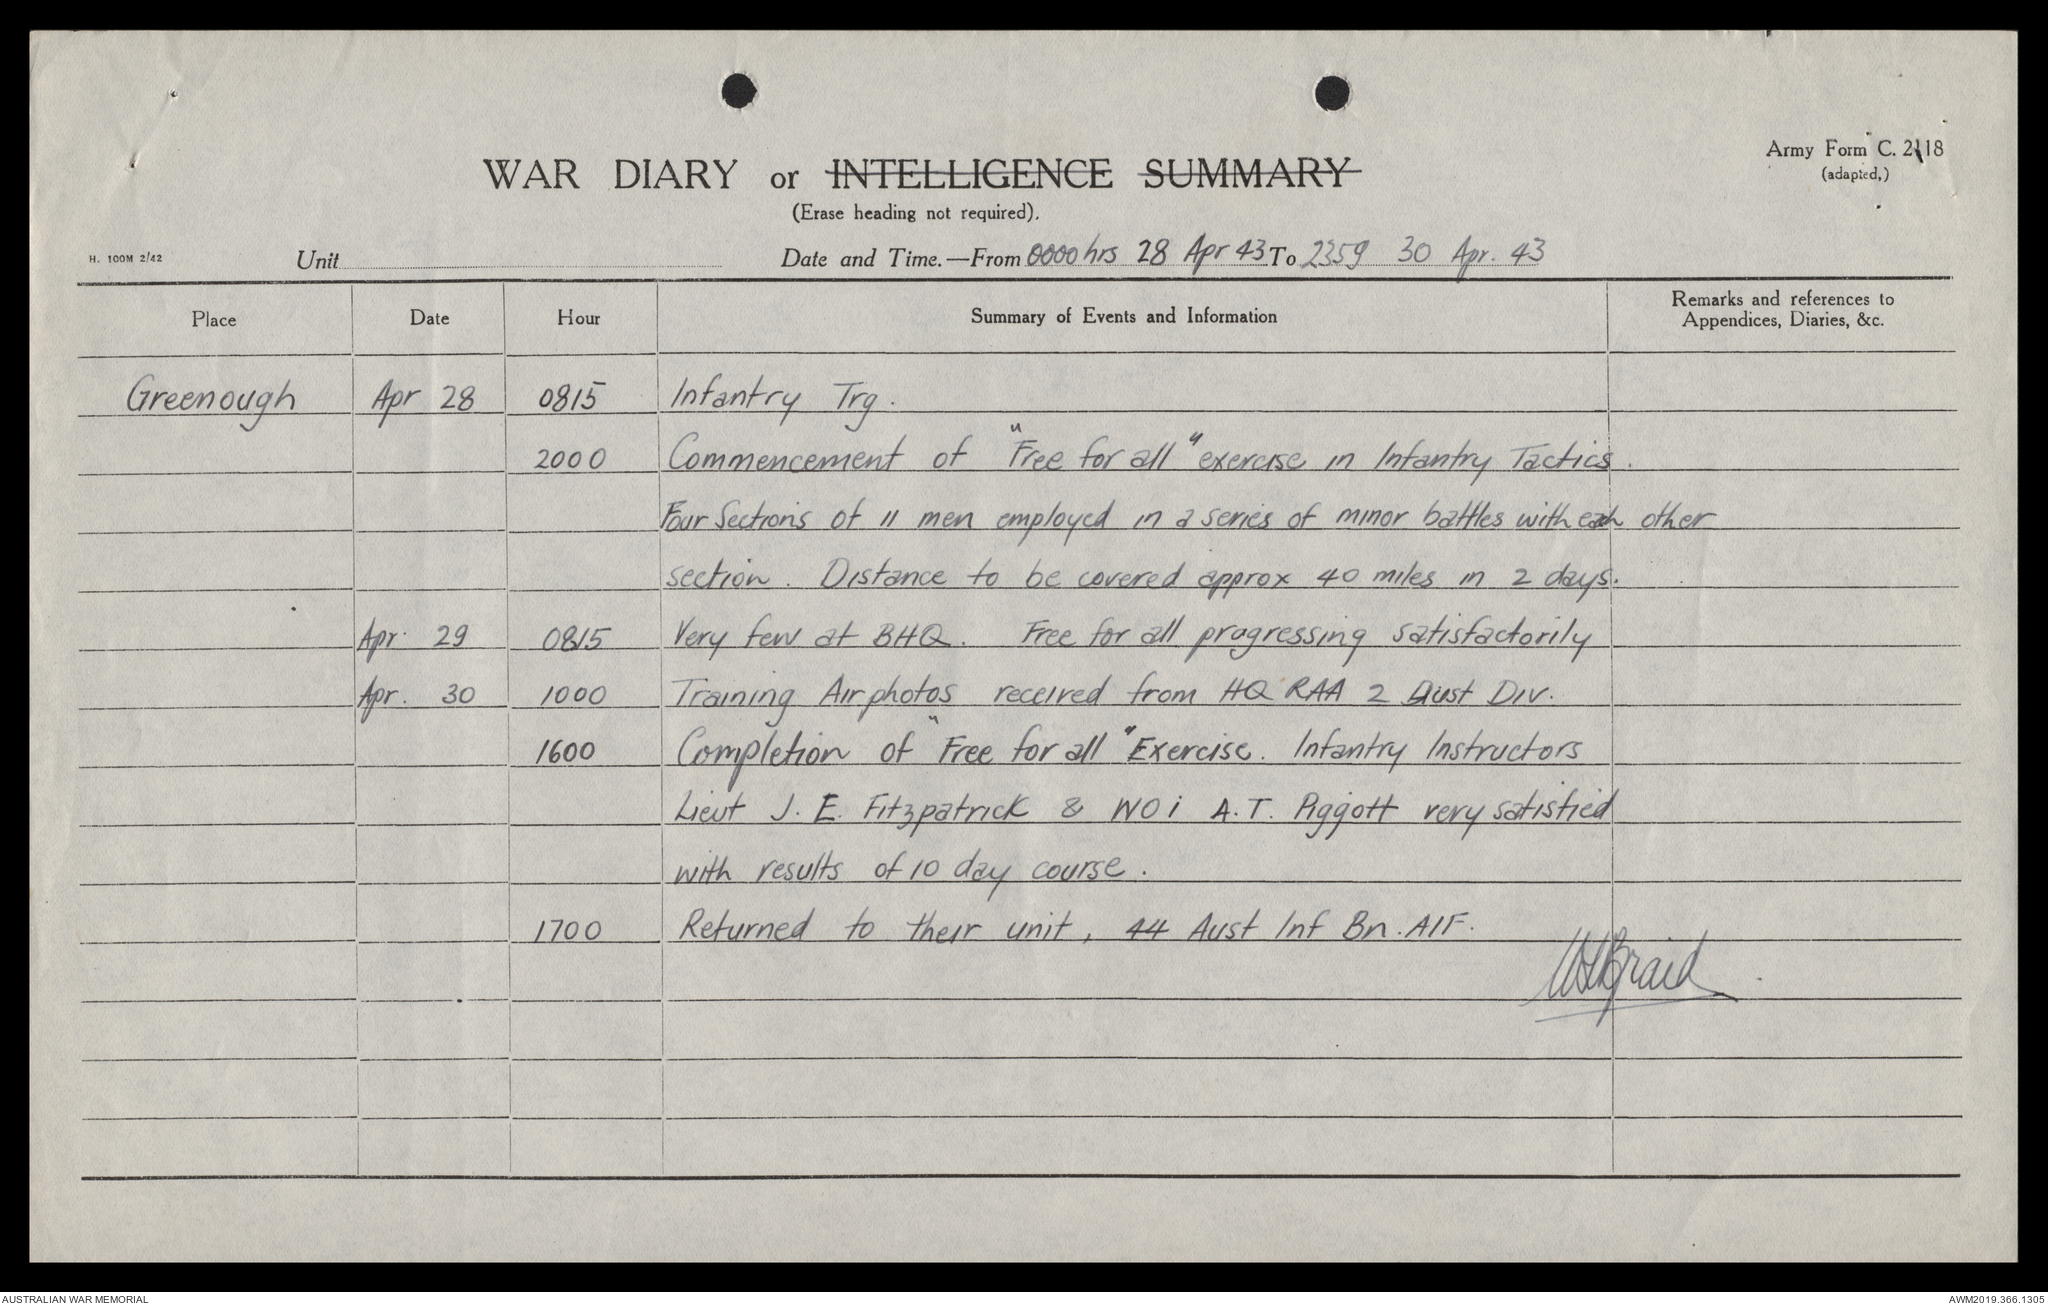 Army Form C. 2118
(adapted,)
WAR DIARY or INTELLIGENCE SUMMARY
(Erase heading not required).
H. 100M 2/42
Unit
Date and Time.—From 0000 hrs 28 Apr 43 To 2359 30 Apr. 43
Place Date Hour Summary of Events and Information Remarks and references to
Appendices, Diaries, &c.
Greenough Apr 28 0815 Infantry Trg.
2000 Commencement of "Free for all" exercise in Infantry Tactics.
Four Sections of 11 men employed in a series of minor battles with each other
section. Distance to be covered approx 40 miles in 2 days.
Apr. 29 0815 Very few at BHQ. Free for all progressing satisfactorily
Apr. 30 1000 Training Air photos received from HQ RAA 2 Aust Div.
1600 Completion of "Free for all" Exercise. Infantry Instructors
Lieut J. E. Fitzpatrick & WO i A.T. Piggott very satisfied
with results of 10 day course.
1700 Returned to their unit, 44 Aust Inf Bn. AIF.
Braid
AUSTRALIAN WAR MEMORIAL
AWM2019.366.1305